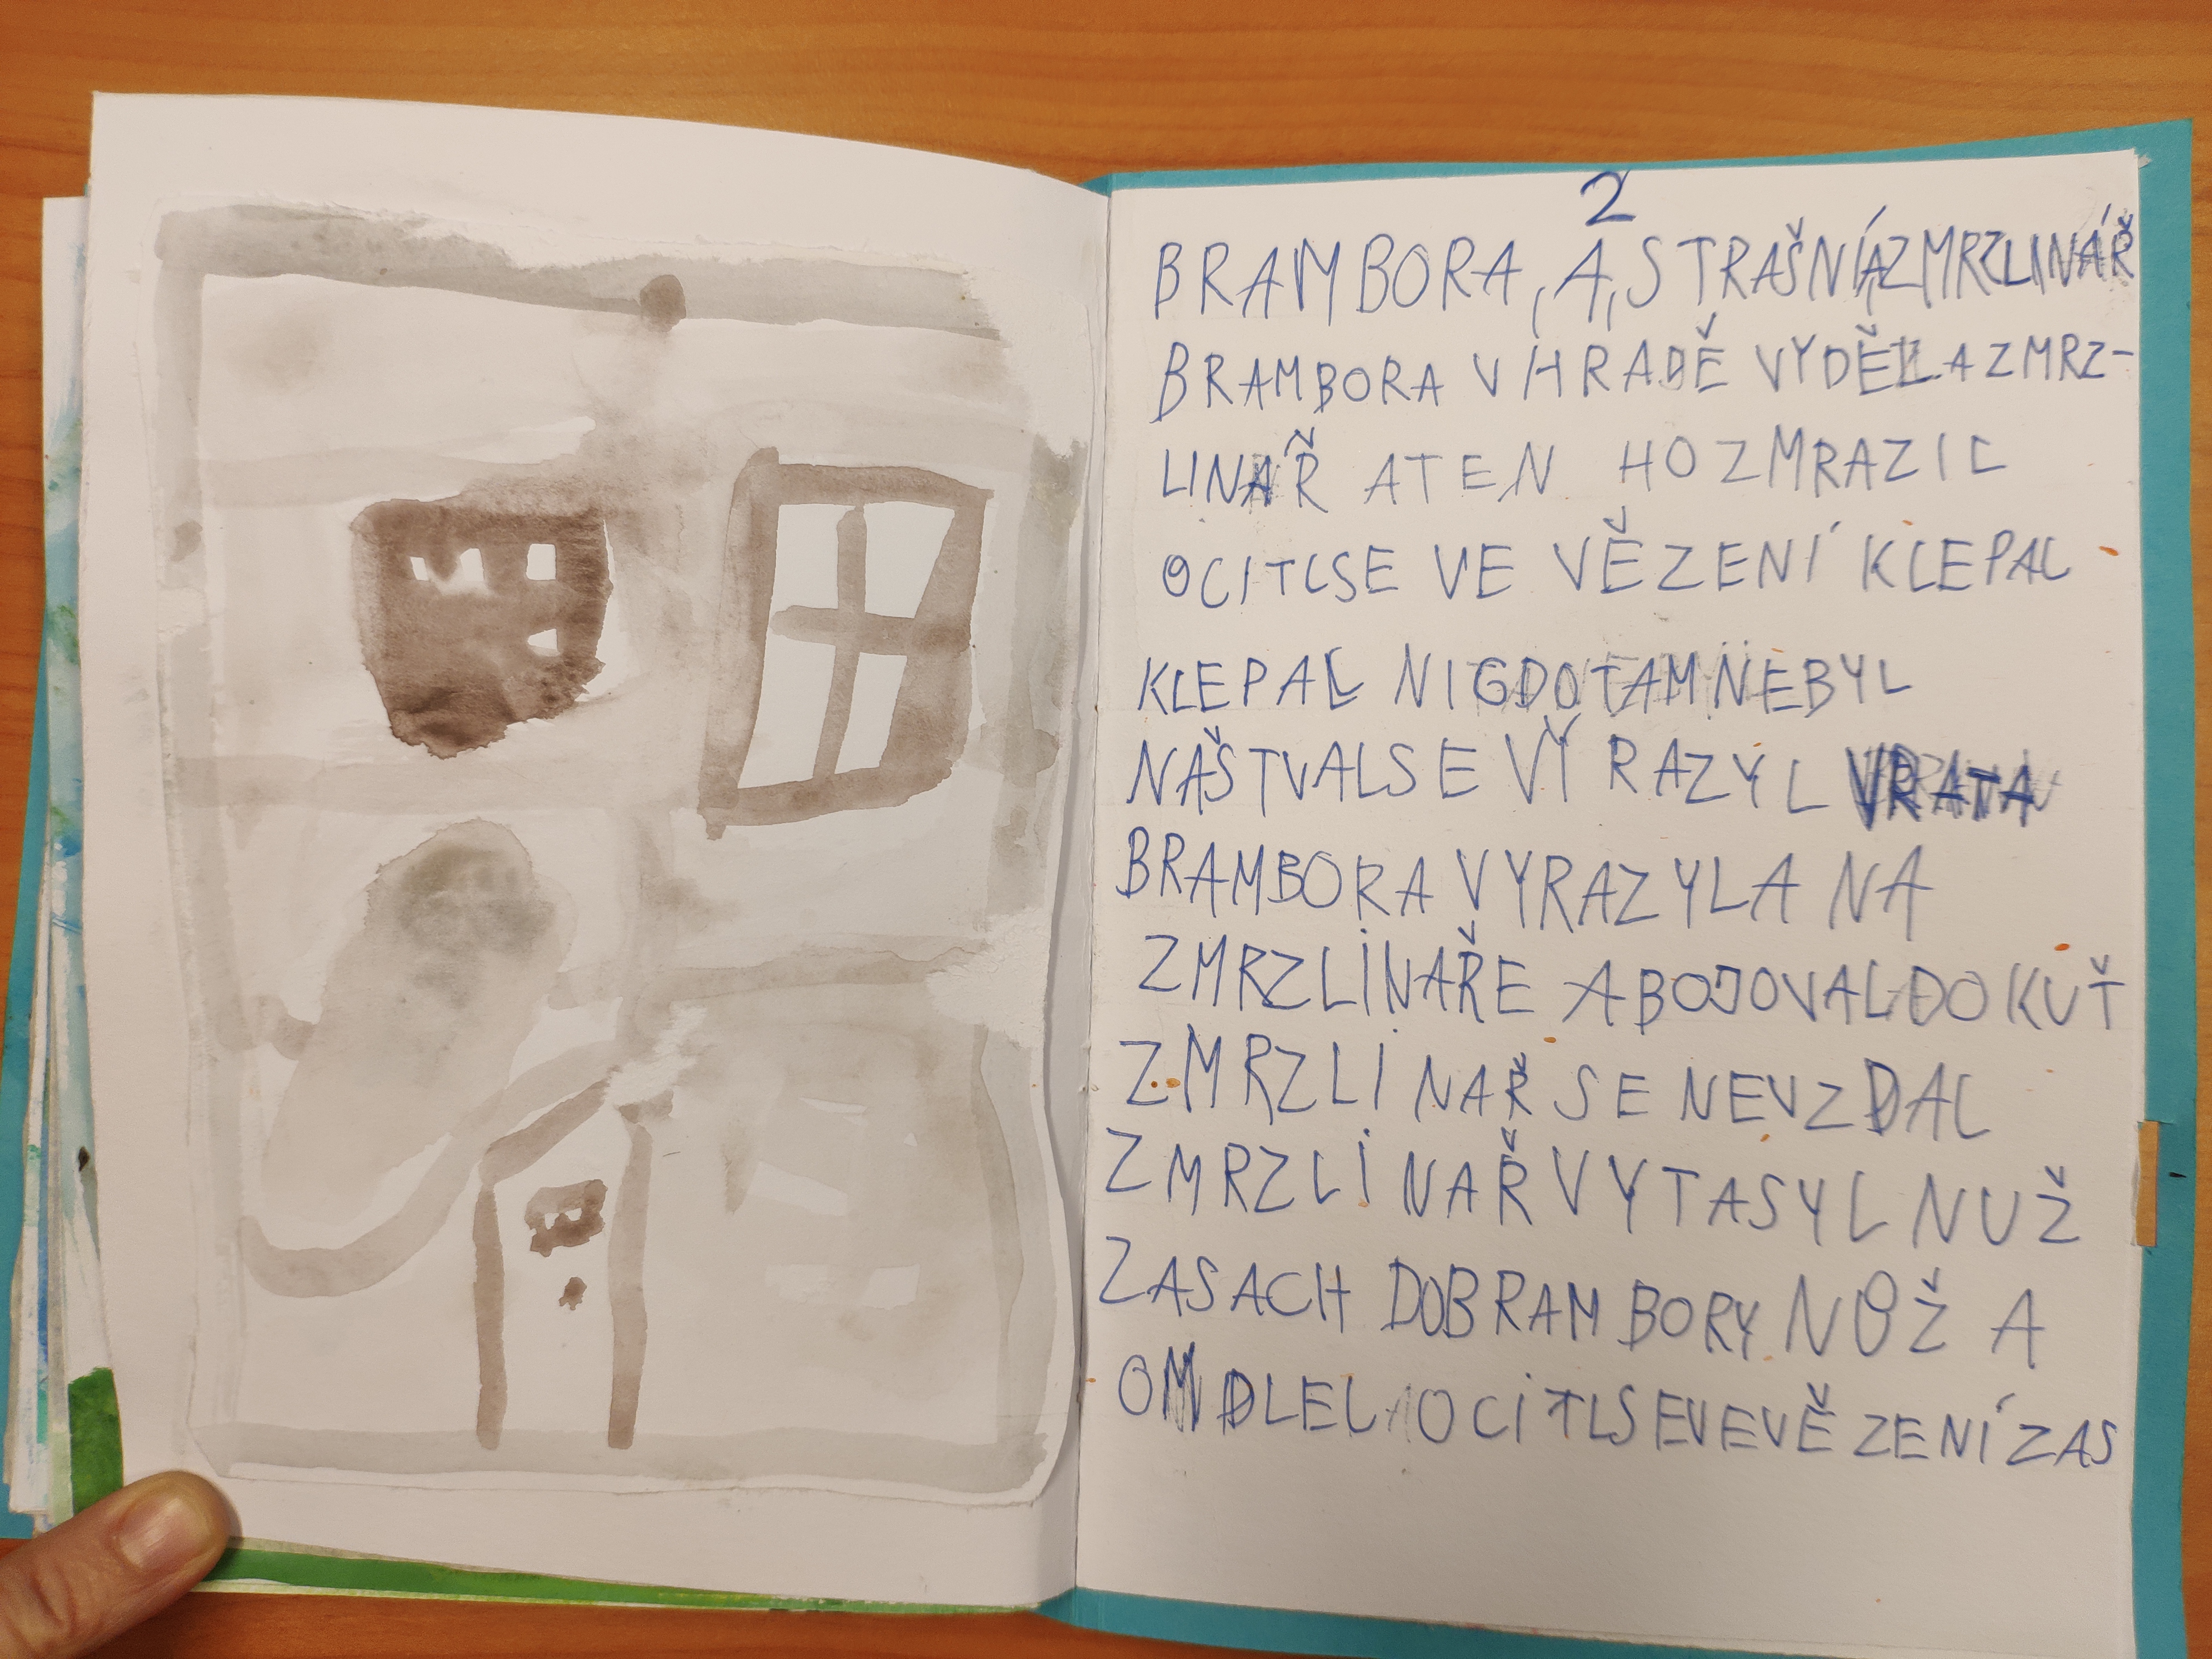 2
BRAMBORA, A, STRAŠNÍ ZMRZLINÁŘ
BRAMBORA V HRADĚ VYDĚLA ZMRZ-
LINAŘ ATEN HO ZMRAZIL
OCITLSE VE VĚZENÍ KLEPAL
KLEPAL NIGDOTAM NEBYL
NAŠTVALSE VY RAZYL VRATA
BRAMBORA VYRAZYLA NA
ZMRZLINAŘE A BOJOVAL DOKUŤ
ZMRZLINAŘ SE NEVZDAL
ZMRZLINAŘ VYTASYL NUŽ
ZASACH DOBRAMBORY NOŽ A
OMDLEL OCITLSEVEVĚZENÍ ZAS